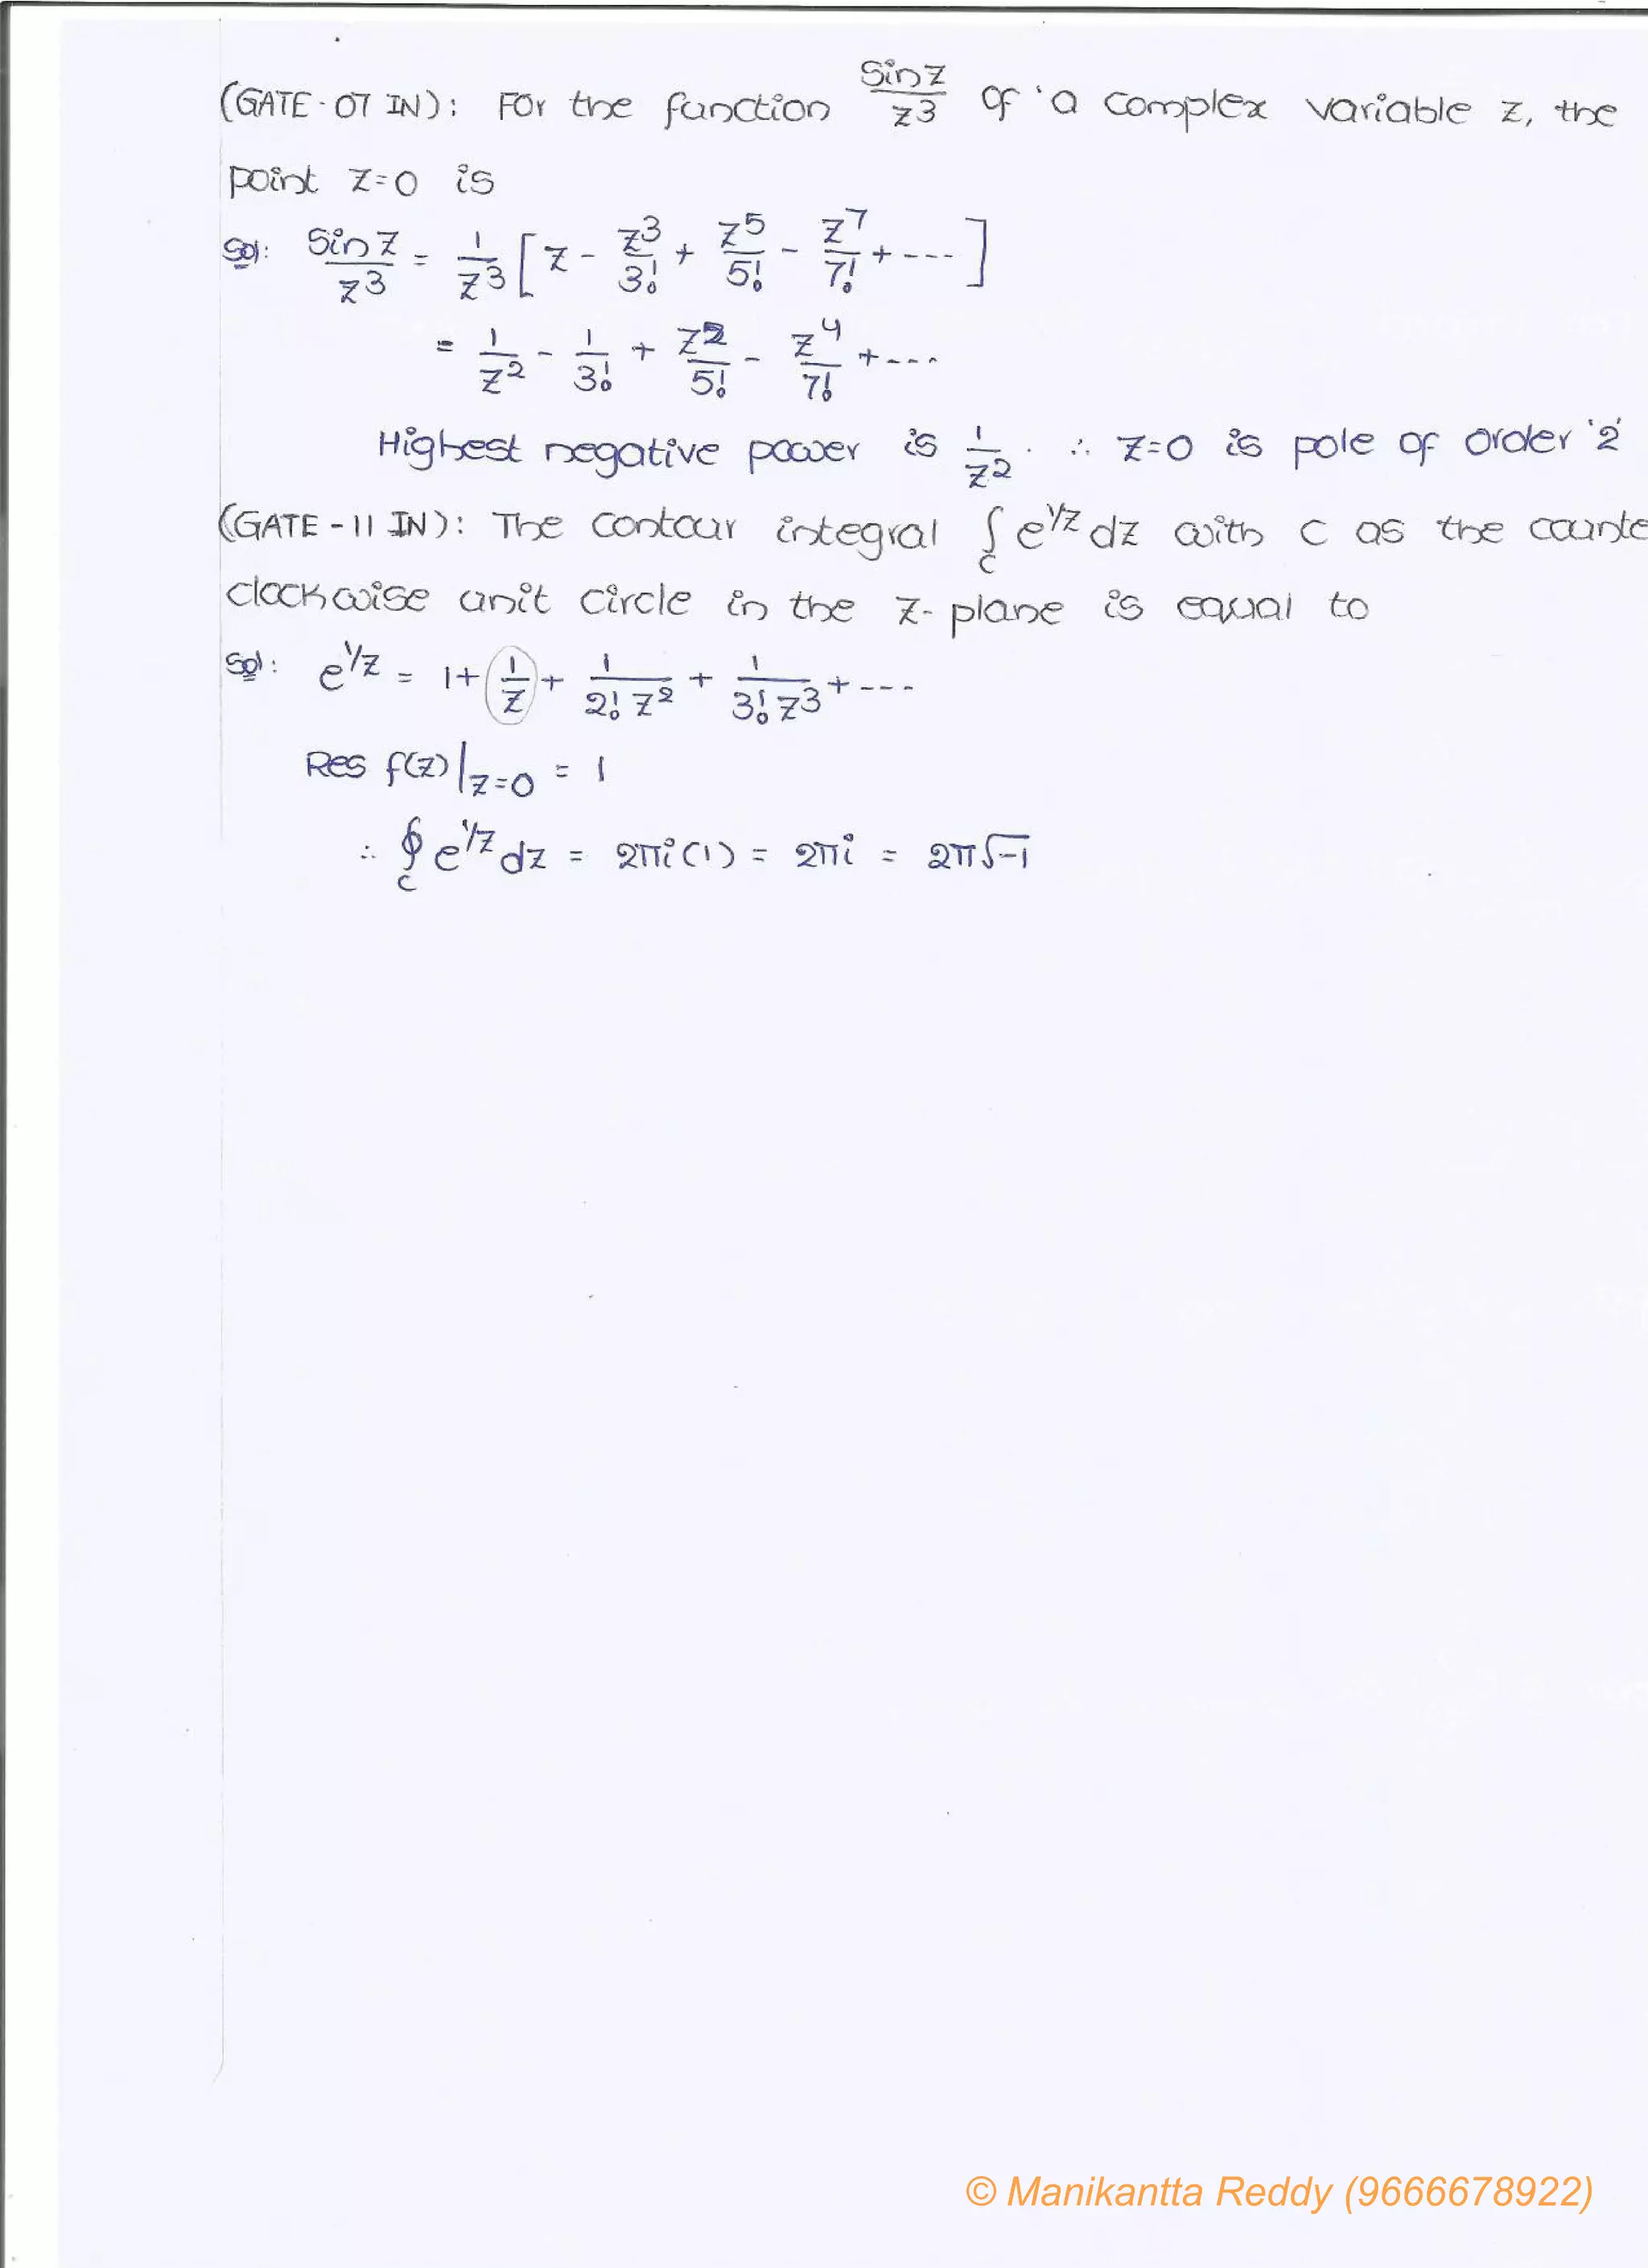 (GATE-07 IN): For the function sinz/z³ of a complex variable z, the
point z=0 is
Sol: sinz/z³ = 1/z³ [z - z³/3! + z⁵/5! - z⁷/7! + ---]
= 1/z² - 1/3! + z²/5! - z⁴/7! + ----
Highest negative power is 1/z². ∴ z=0 is pole of order '2'
(GATE-11 IN): The contour integral ∫_c e^{1/z} dz with c as the counte
clockwise unit circle in the z-plane is equal to
Sol: e^{1/z} = 1 + 1/z + 1/(2! z²) + 1/(3! z³) + ---
Res f(z)|_{z=0} = 1
∴ ∮_c e^{1/z} dz = 2πi(1) = 2πi = 2π√-1
© Manikantta Reddy (9666678922)